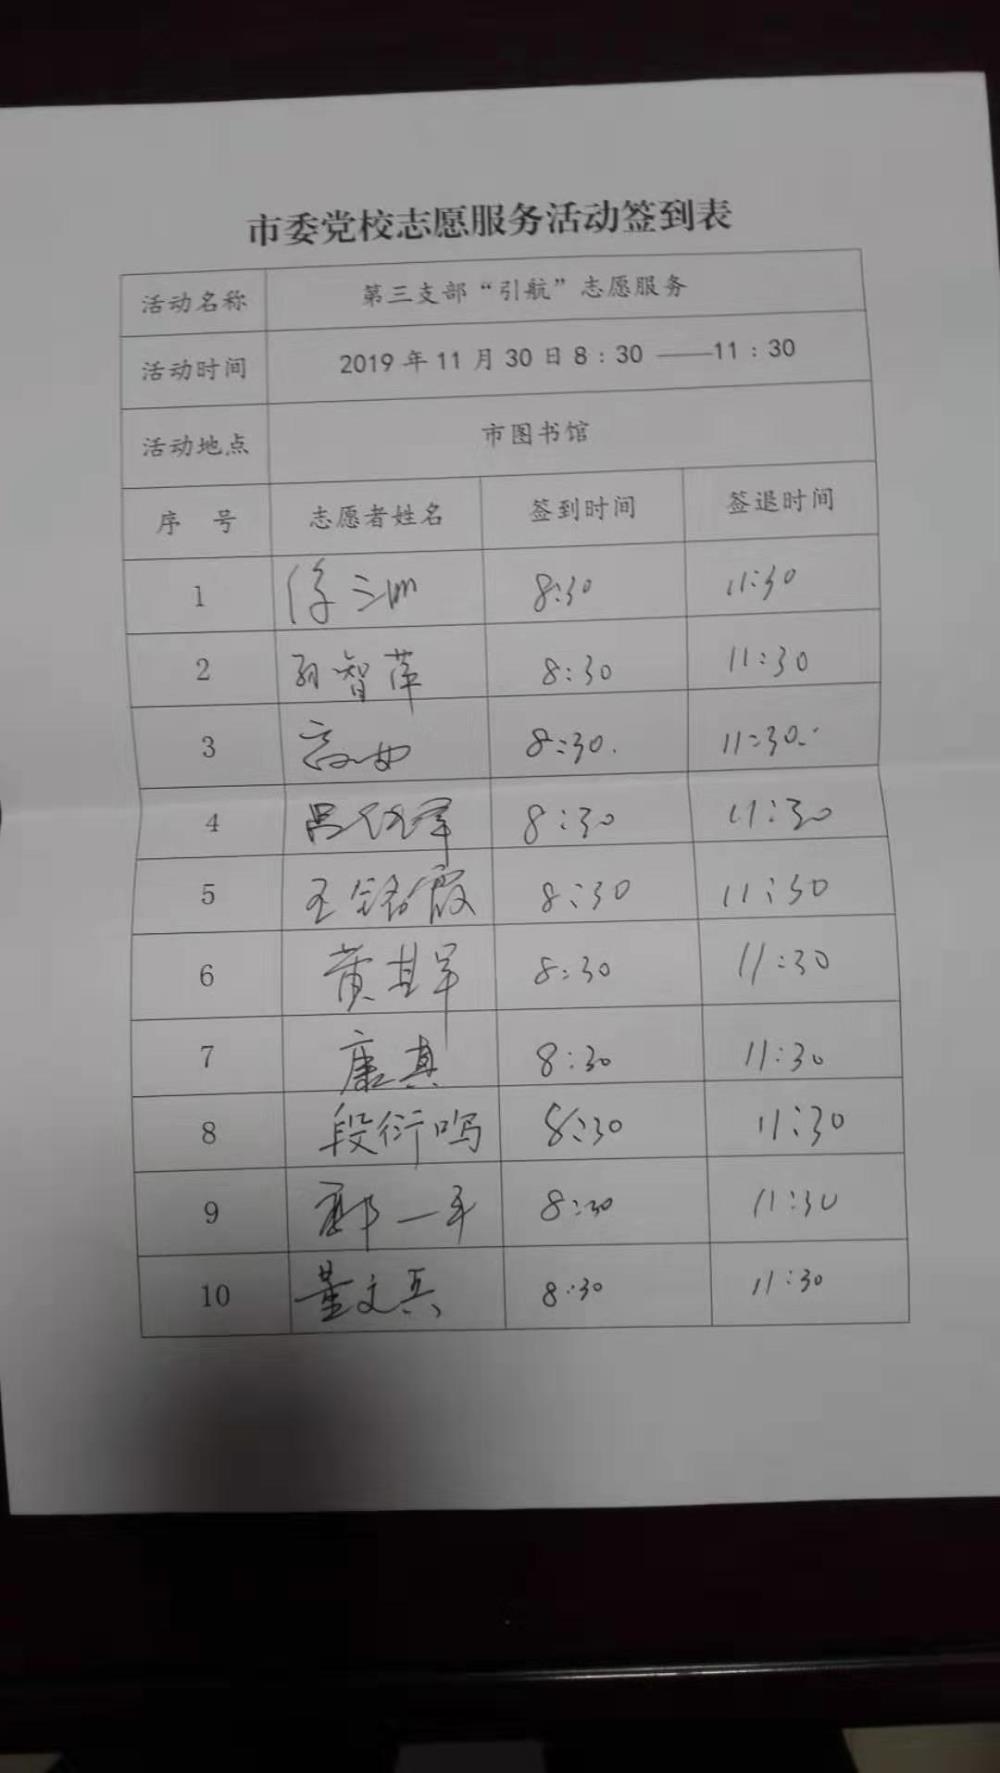 市委党校志愿服务活动签到表
活动名称 第三支部“引航”志愿服务
活动时间 2019年11月30日8:30——11:30
活动地点 市图书馆
序 号 志愿者姓名 签到时间 签退时间
1 8:30 11:30
2 孙智萍 8:30 11:30
3 8:30. 11:30.
4 吕 8:30 11:30
5 王铭霞 8:30 11:30
6 黄其军 8:30 11:30
7 康真 8:30 11:30
8 段衍鸣 8:30 11:30
9 一平 8:30 11:30
10 董文兵 8:30 11:30